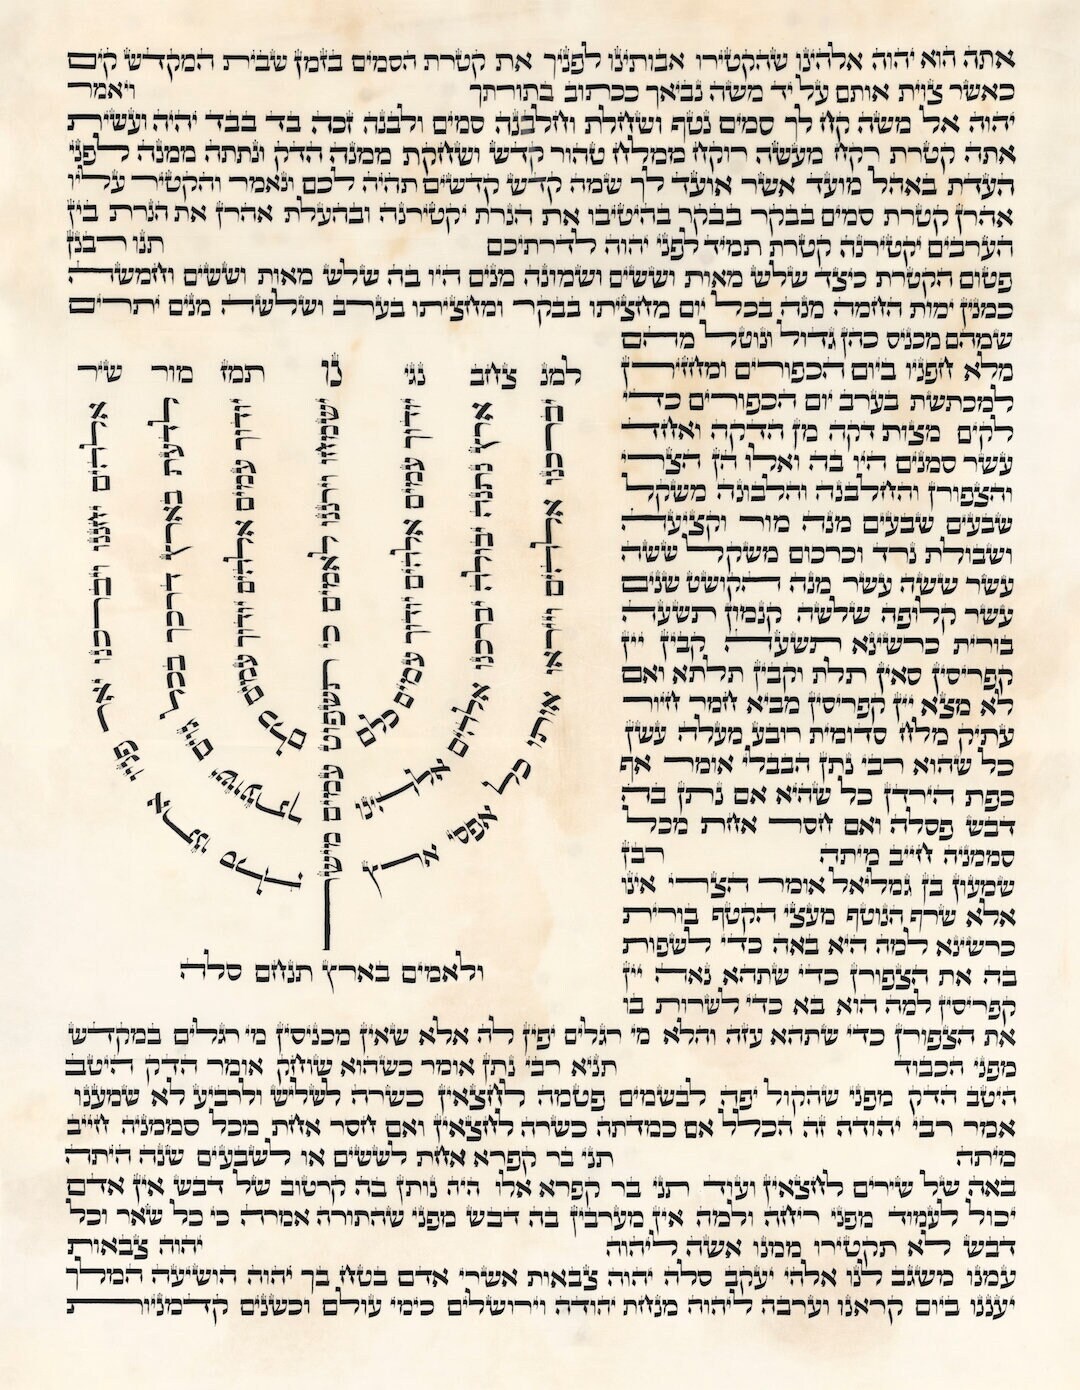 אתה הוא יהוה אלהינו שהקטירו אבותינו לפניך את קטרת הסמים בזמן שבית המקדש קים
כאשר צוית אותם על יד משה נביאך ככתוב בתורתך ויאמר
יהוה אל משה קח לך סמים נטף ושחלת וחלבנה סמים ולבנה זכה בד בבד יהיה ועשית
אתה קטרת רקח מעשה רוקח ממלח טהור קדש ושחקת ממנה הדק ונתתה ממנה לפני
העדת באהל מועד אשר אועד לך שמה קדש קדשים תהיה לכם ונאמר והקטיר עליו
אהרן קטרת סמים בבקר בבקר בהיטיבו את הנרת יקטירנה ובהעלת אהרן את הנרת בין
הערבים יקטירנה קטרת תמיד לפני יהוה לדרתיכם תנו רבנן
פטום הקטרת כיצד שלש מאות וששים ושמונה מנים היו בה שלש מאות וששים וחמשה
כמנין ימות החמה מנה בכל יום מחציתו בבקר ומחציתו בערב ושלשה מנים יתרים
שמהם מכניס כהן גדול ונוטל מהם
מלא חפניו ביום הכפורים ומחזירן
למכתשת בערב יום הכפורים כדי
לקים מצות דקה מן הדקה ואחד
עשר סמנים היו בה ואלו הן הצרי
והצפורן והחלבנה והלבונה משקל
שבעים שבעים מנה מור וקציעה
ושבולת נרד וכרכום משקל ששה
עשר ששה עשר מנה הקושט שנים
עשר קלופה שלשה קנמון תשעה
בורית כרשינא תשעה קבין יין
קפריסין סאין תלת וקבין תלתא ואם
לא מצא יין קפריסין מביא חמר חיור
עתיק מלח סדומית רובע מעלה עשן
כל שהוא רבי נתן הבבלי אומר אף
כפת הירדן כל שהיא אם נתן בה
דבש פסלה ואם חסר אחת מכל
סממניה חייב מיתה רבן
שמעון בן גמליאל אומר הצרי אינו
אלא שרף הנוטף מעצי הקטף בורית
כרשינא למה היא באה כדי לשפות
בה את הצפורן כדי שתהא נאה יין
קפריסין למה הוא בא כדי לשרות בו
למנ צחב נגי נן תמז מור שיר
יברכנו אלהים וייראו אותו כל אפסי ארץ
ארץ נתנה יבולה יברכנו אלהים אלהינו
יודוך עמים אלהים יודוך עמים כלם
ישמחו וירננו לאמים כי תשפוט עמים מישר
יודוך עמים אלהים יודוך עמים כלם
לדעת בארץ דרכך בכל גוים ישועתך
אלהים יחננו ויברכנו יאר פניו אתנו סלה
ולאמים בארץ תנחם סלה
את הצפורן כדי שתהא עזה והלא מי רגלים יפין לה אלא שאין מכניסין מי רגלים במקדש
מפני הכבוד תניא רבי נתן אומר כשהוא שוחק אומר הדק היטב
היטב הדק מפני שהקול יפה לבשמים פטמה לחצאין כשרה לשליש ולרביע לא שמענו
אמר רבי יהודה זה הכלל אם כמדתה כשרה לחצאין ואם חסר אחת מכל סממניה חייב
מיתה תני בר קפרא אחת לששים או לשבעים שנה היתה
באה של שירים לחצאין ועוד תני בר קפרא אלו היה נותן בה קרטוב של דבש אין אדם
יכול לעמוד מפני ריחה ולמה אין מערבין בה דבש מפני שהתורה אמרה כי כל שאר וכל
דבש לא תקטירו ממנו אשה ליהוה יהוה צבאות
עמנו משגב לנו אלהי יעקב סלה יהוה צבאות אשרי אדם בטח בך יהוה הושיעה המלך
יעננו ביום קראנו וערבה ליהוה מנחת יהודה וירושלים כימי עולם וכשנים קדמניות